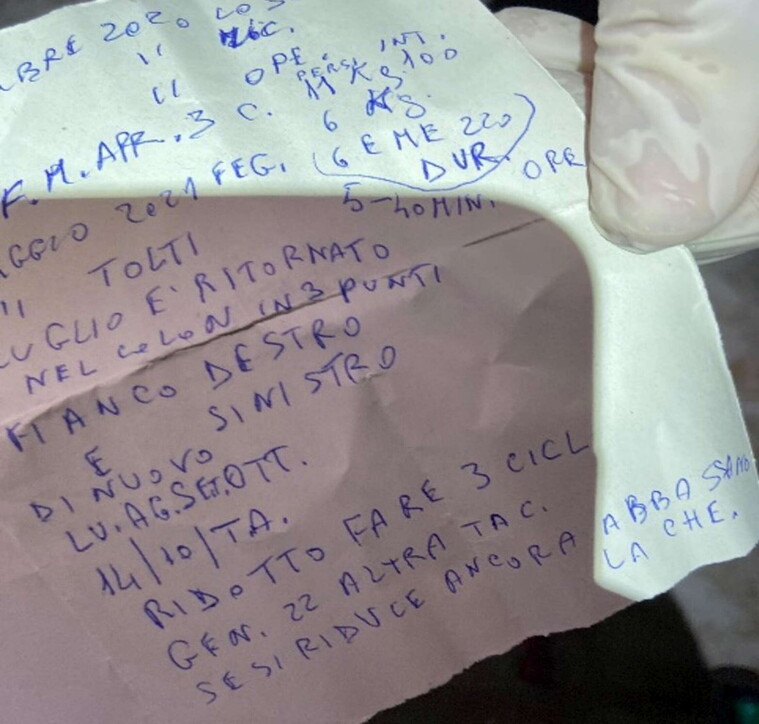 BRE 2020 CO
" LIC.
" OPE. INT.
PERS. 100
F. M. APR. 3 C. 11 KG.
6 KG.
GGIO 2021 FEG. (6 E ME 220)
DUR. OPE
5-40 MIN.
" TOLTI
LUGLIO E' RITORNATO
NEL COLON IN 3 PUNTI
FIANCO DESTRO
E SINISTRO
DI NUOVO
LU.AG.SET.OTT.
14/10/TA.
RIDOTTO FARE 3 CICL
GEN. 22 ALTRA TAC.
SE SI RIDUCE ANCORA ABBASSANO
LA CHE.